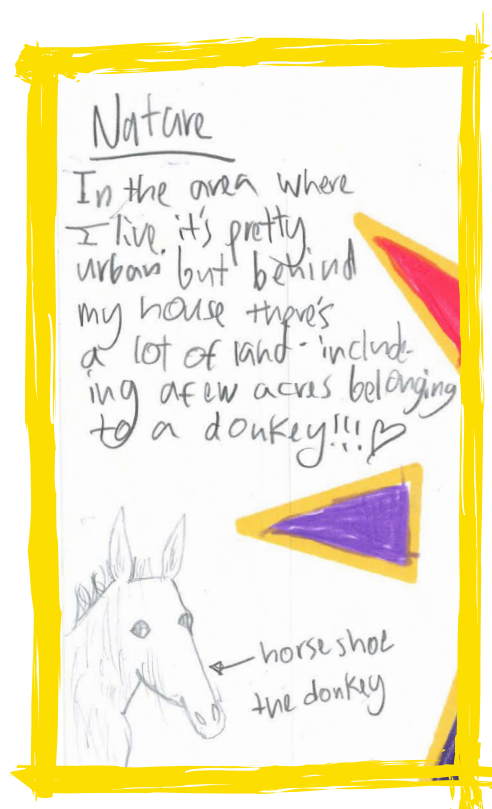 Nature
In the area where
I live it's pretty
urban but behind
my house there's
a lot of land - includ-
ing a few acres belonging
to a donkey!!! ♡
horseshoe
the donkey